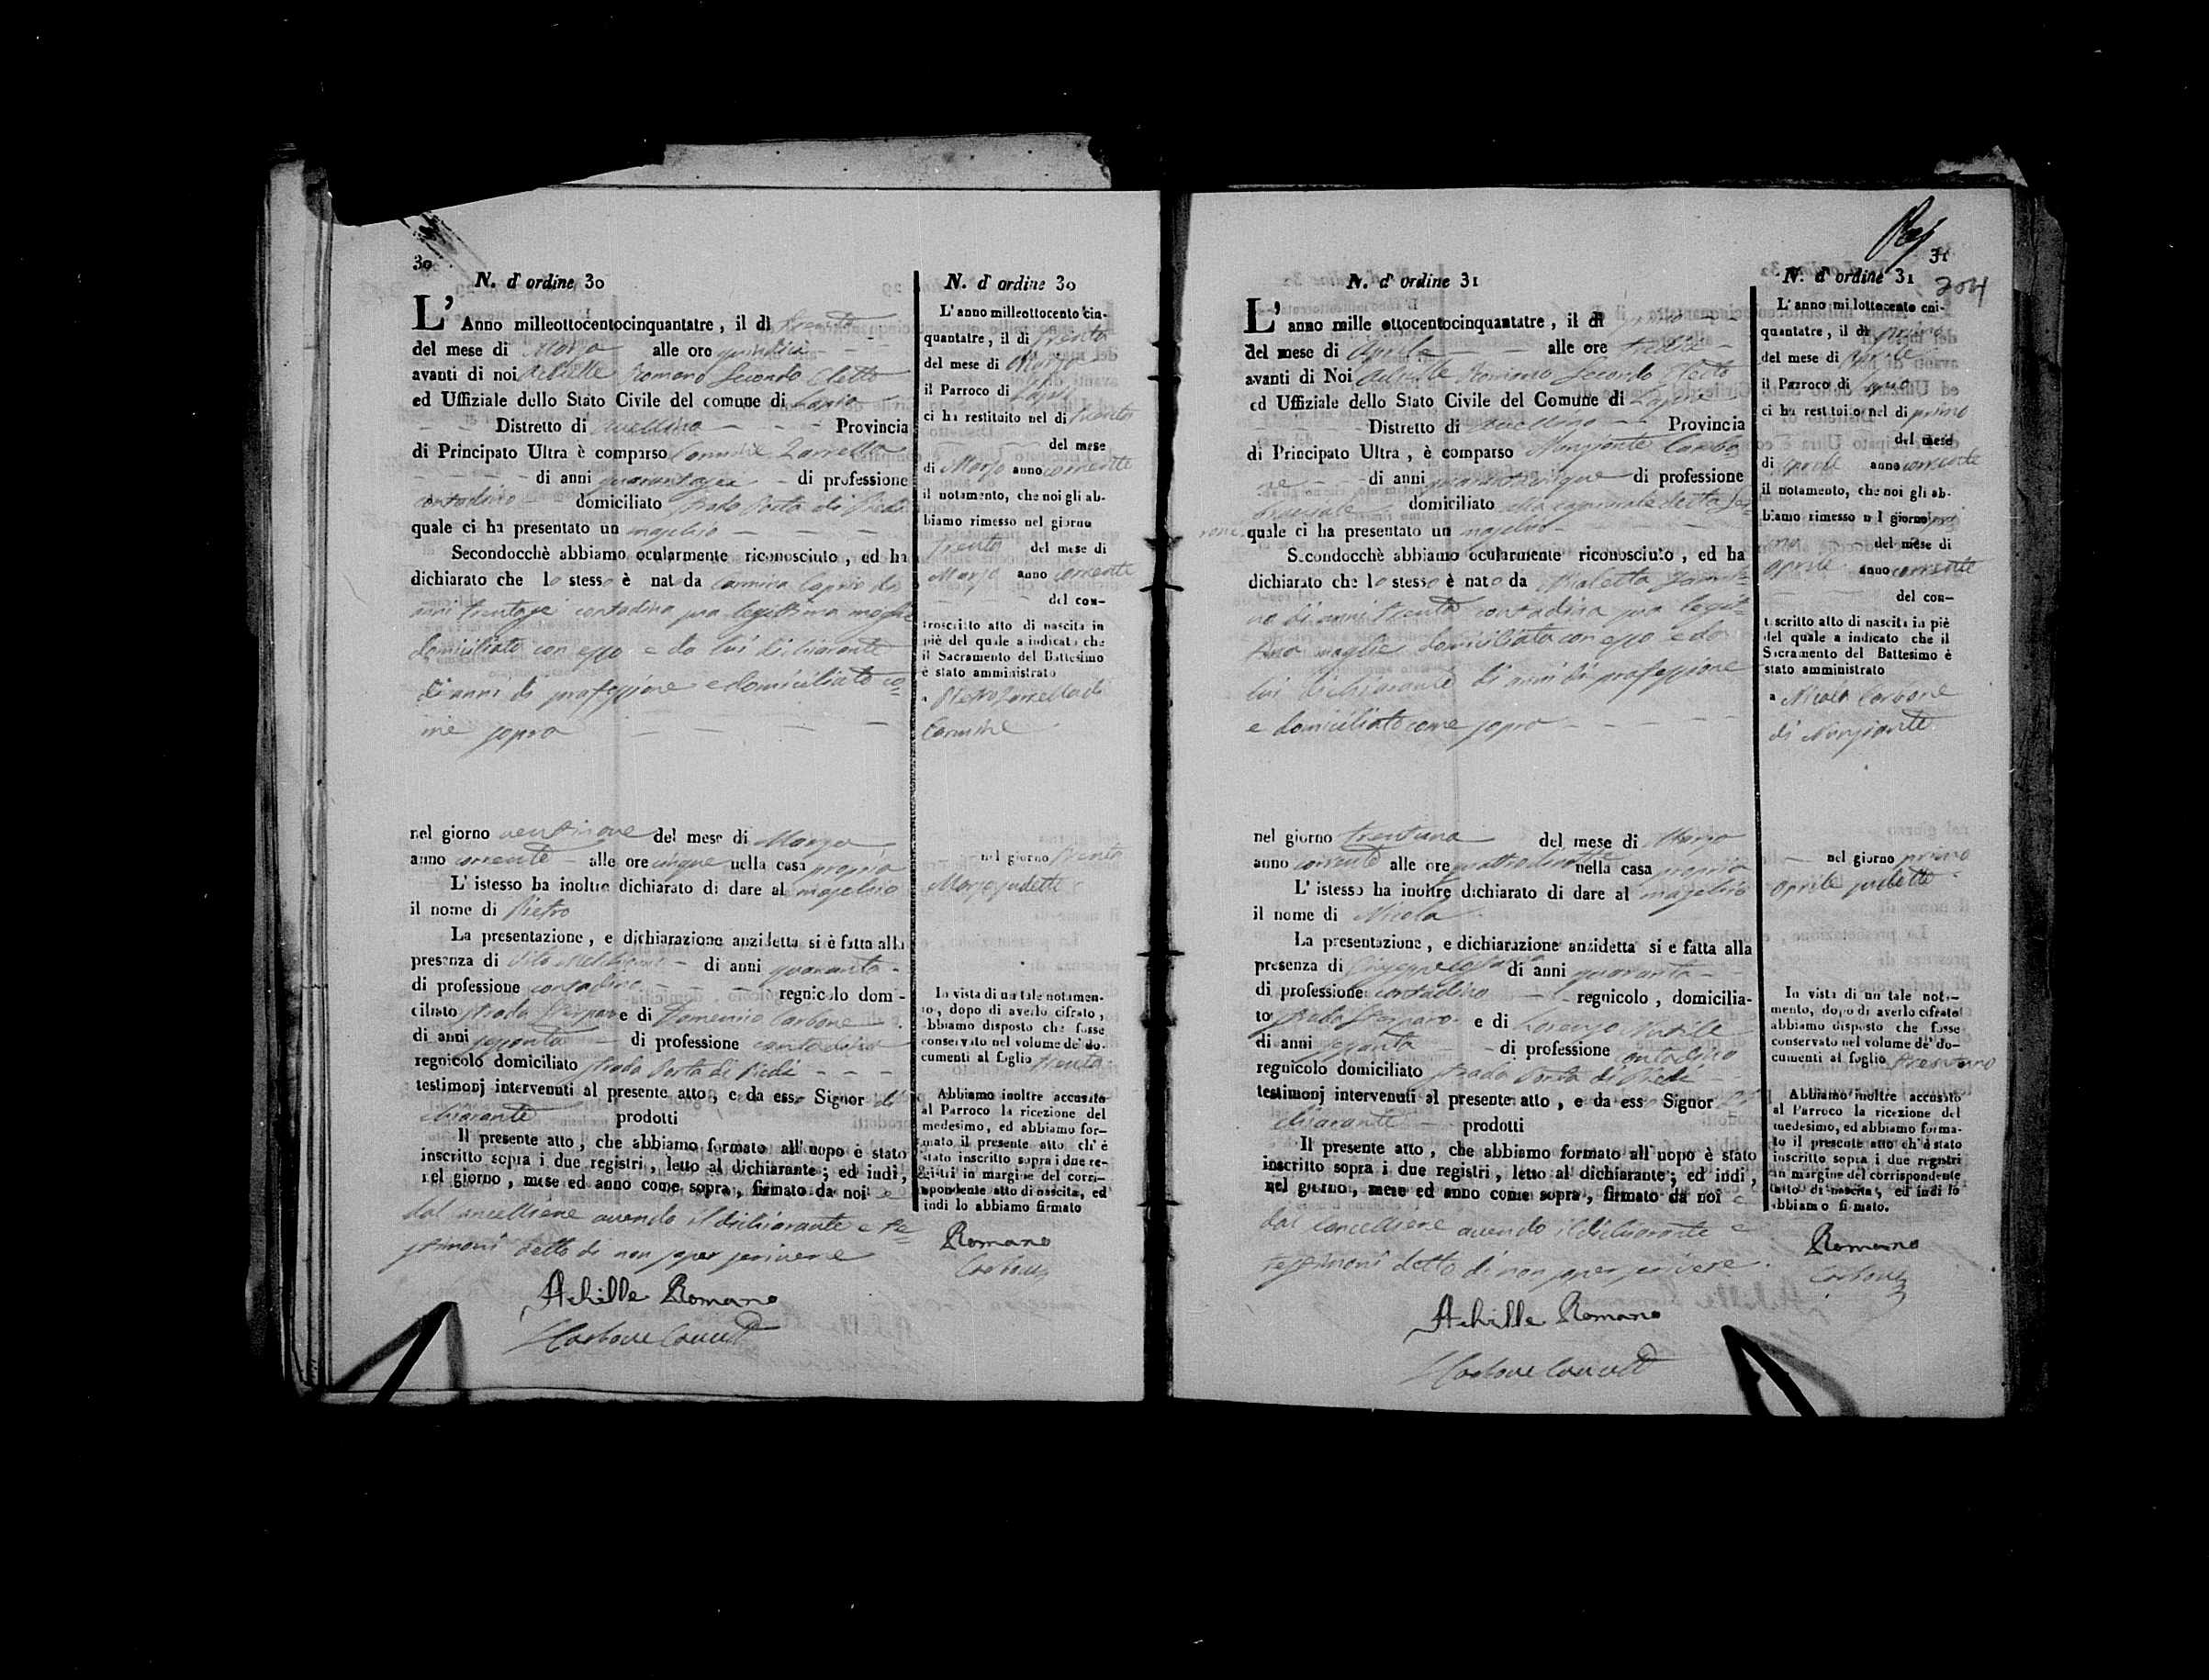 30
N. d' ordine 30
L' Anno milleottocentocinquantatre, il dì trenta
del mese di Marzo alle ore quindici
avanti di noi Achille Romano Secondo Eletto
ed Uffiziale dello Stato Civile del comune di Capria
Distretto di Avellino Provincia
di Principato Ultra è comparso Carmine Zarrella
di anni quarantasei di professione
contadino domiciliato strada Porta di Piedi
quale ci ha presentato un maschio
Secondocchè abbiamo ocularmente riconosciuto, ed ha
dichiarato che lo stesso è nato da Carmina Caprio di
anni trentasei contadina sua legittima moglie
domiciliata con esso e da lui dichiarante
di anni di professione e domiciliato co=
me sopra
nel giorno ventinove del mese di Marzo
anno corrente alle ore cinque nella casa propria
L' istesso ha inoltre dichiarato di dare al maschio
il nome di Pietro
La presentazione, e dichiarazione anzidetta si è fatta alla
presenza di Vito di anni quaranta
di professione contadino regnicolo domi-
ciliato strada e di Domenico Carbone
di anni sessanta di professione contadino
regnicolo domiciliato strada Porta di Piedi
testimonj intervenuti al presente atto, e da esso Signor di
chiarante prodotti
Il presente atto, che abbiamo formato all' uopo è stato
inscritto sopra i due registri, letto al dichiarante; ed indi,
nel giorno, mese ed anno come sopra, firmato da noi e
dal cancelliere avendo il dichiarante e te=
stimoni detto di non saper scrivere
Achille Romano
Carbone Canc.
N. d' ordine 30
L' anno milleottocento cin-
quantatre, il dì trenta
del mese di Marzo
il Parroco di
ci ha restituito nel dì trenta
del mese
di Marzo anno corrente
il notamento, che noi gli ab-
biamo rimesso nel giorno
trenta del mese di
Marzo anno corrente
del con-
troscritto atto di nascita in
piè del quale a indicato che
il Sacramento del Battesimo
è stato amministrato
a Pietro Zarrella di
Carmine
nel giorno trenta
Marzo sudetto
In vista di un tale notamen-
to, dopo di averlo cifrato,
abbiamo disposto che fosse
conservato nel volume de' do-
cumenti al foglio trenta
Abbiamo inoltre accusato
al Parroco la ricezione del
medesimo, ed abbiamo for-
mato il presente atto ch' è
stato inscritto sopra i due re-
gistri in margine del corri-
spondente atto di nascita, ed
indi lo abbiamo firmato
Romano
Carbone
31
304
N. d' ordine 31
L' anno mille ottocentocinquantatre, il dì primo
del mese di Aprile alle ore tredici
avanti di Noi Achille Romano Secondo Eletto
ed Uffiziale dello Stato Civile del Comune di
Distretto di Avellino Provincia
di Principato Ultra, è comparso Nunziante Carbo=
ne di anni quarantacinque di professione
bracciale domiciliato
quale ci ha presentato un maschio
Secondocchè abbiamo ocularmente riconosciuto, ed ha
dichiarato che lo stesso è nato da
di anni trenta contadina sua legit=
tima moglie domiciliata con esso e da
lui dichiarante di anni di professione
e domiciliato come sopra
nel giorno trentuno del mese di Marzo
anno corrente alle ore nella casa propria
L' istesso ha inoltre dichiarato di dare al maschio
il nome di Nicola
La presentazione, e dichiarazione anzidetta si e fatta alla
presenza di Giuseppe di anni quaranta
di professione contadino regnicolo, domicilia-
to strada e di Lorenzo
di anni sessanta di professione contadino
regnicolo domiciliato strada Porta di Piedi
testimonj intervenuti al presente atto, e da ess Signor di
chiarante prodotti
Il presente atto, che abbiamo formato all' uopo è stato
inscritto sopra i due registri, letto al dichiarante; ed indi,
nel giorno, mese ed anno come sopra, firmato da noi e
dal cancelliere avendo il dichiarante e
testimoni detto di non saper scrivere.
Achille Romano
Carbone Canc.
N. d' ordine 31
L' anno milottocento cni-
quantatre, il dì primo
del mese di Aprile
il Parroco di
ci ha restituito nel dì primo
del mese
di Aprile anno corrente
il notamento, che noi gli ab-
biamo rimesso nel giorno pri
mo del mese di
Aprile anno corrente
del con-
troscritto atto di nascita in piè
del quale a indicato che il
Sacramento del Battesimo è
stato amministrato
a Nicola Carbone
di Nunziante
nel giorno primo
Aprile sudetto
In vista di un tale nota-
mento, dopo di averlo cifrato
abbiamo disposto che fosse
conservato nel volume de' do-
cumenti al foglio trentuno
Abbiamo inoltre accusato
al Parroco la ricezione del
medesimo, ed abbiamo forma-
to il presente atto ch' è stato
inscritto sopra i due registri
in margine del corrispondente
atto di nascita, ed indi lo
abbiamo firmato.
Romano
Carbone